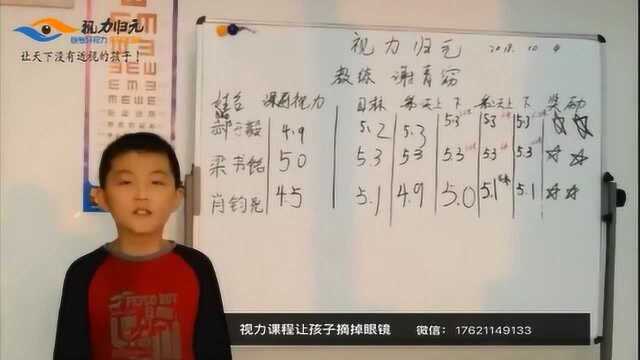 视力归元
让天下没有近视的孩子！
视力归元 2018.10.4
教练 谢青窈
姓名 课前视力 目标 第一天上 下 第二天上 下 奖励
4.9 5.2 5.3 5.3 5.3 5.3 ☆☆
梁书铭 5.0 5.3 5.3 5.3 5.3 5.3 ☆☆
肖钧尧 4.5 5.1 4.9 5.0 5.1 5.1 ☆☆
视力课程让孩子摘掉眼镜 微信： 17621149133